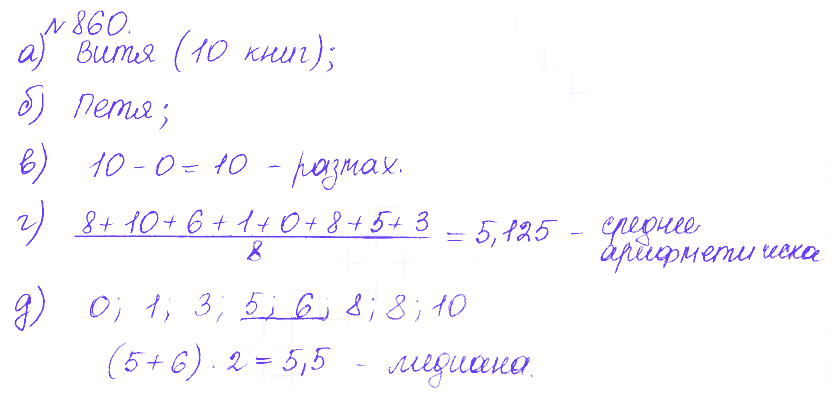 № 860.
а) Витя (10 книг);
б) Петя;
в) 10 - 0 = 10 - размах.
г) (8 + 10 + 6 + 1 + 0 + 8 + 5 + 3) / 8 = 5,125 - среднее арифметическа
д) 0; 1; 3; 5; 6; 8; 8; 10
(5 + 6) · 2 = 5,5 - медиана.